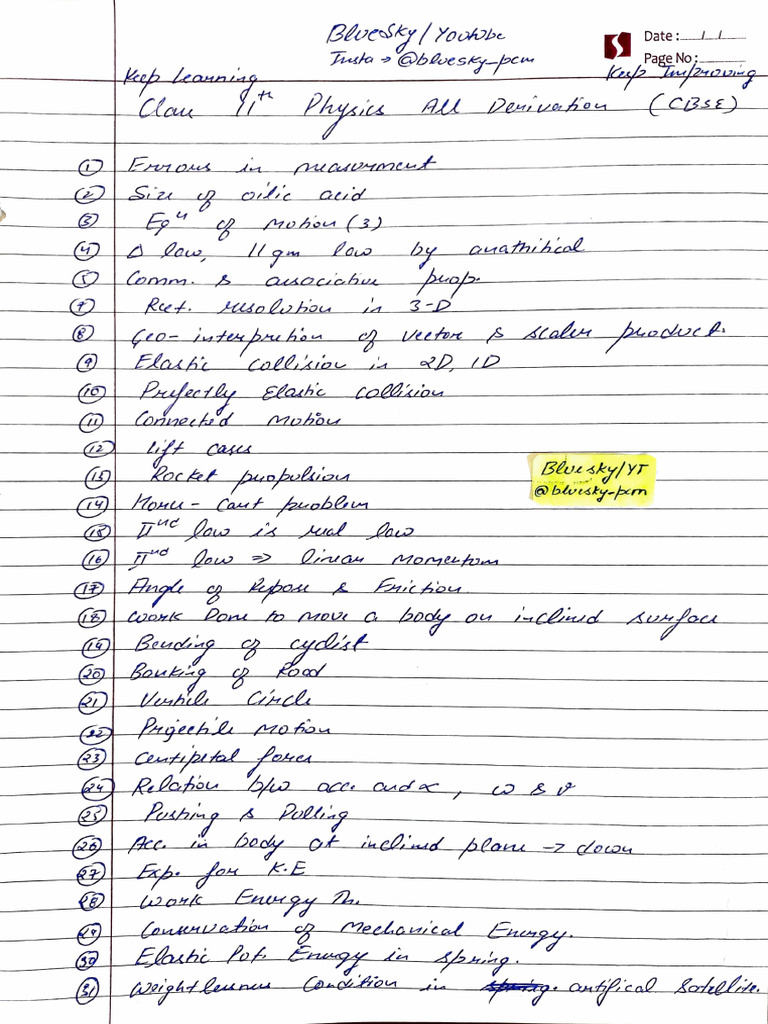 BlueSky/Youtube
Insta → @bluesky_pcm
Date :
Page No :
Keep Learning
Keep Improving
Class 11th Physics All Derivation (CBSE)
① Errors in measurment
② Size of oilic acid
③ Eqn of Motion (3)
④ Δ law, 11gm law by anathitical
⑤ Comm. & associative prop.
⑦ Rect. resolution in 3-D
⑧ Geo-interpretion of vector & scaler product.
⑨ Elastic collision in 2D, 1D
⑩ Prefectly Elastic collision
⑪ Connected Motion
⑫ lift cases
⑬ Rocket propulsion
⑭ Horse-Cart problem
⑮ IInd law is real law
⑯ IInd law ⇒ linear momentom
⑰ Angle of Repose & Friction.
⑱ Work Done to move a body on inclined surface
⑲ Bending of cyclist
⑳ Banking of Road
㉑ Verticle Circle
㉒ Projectile Motion
㉓ Centipetal force
㉔ Relation b/w acc. and α, ω & v
㉕ Pushing & Pulling
㉖ Acc. in body at inclined plane → down
㉗ Exp. for K.E
㉘ Work Energy Th.
㉙ Conservation of Mechanical Energy.
㉚ Elastic Pot. Energy in spring.
㉛ Weightlessness Condition in spring. artifical satellite.
Bluesky/YT
@bluesky-pcm